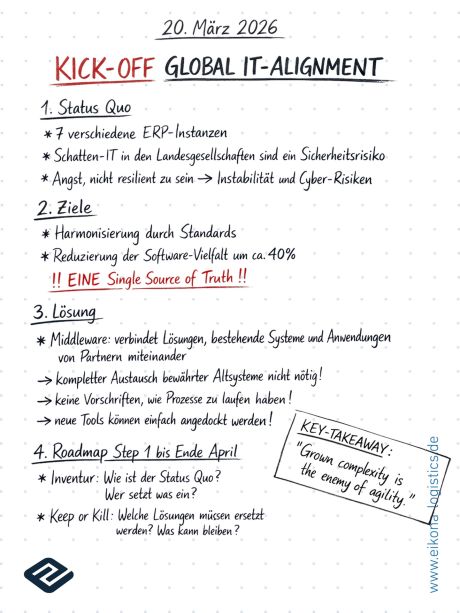 20. März 2026
KICK-OFF GLOBAL IT-ALIGNMENT
1. Status Quo
* 7 verschiedene ERP-Instanzen
* Schatten-IT in den Landesgesellschaften sind ein Sicherheitsrisiko
* Angst, nicht resilient zu sein → Instabilität und Cyber-Risiken
2. Ziele
* Harmonisierung durch Standards
* Reduzierung der Software-Vielfalt um ca. 40%
!! EINE Single Source of Truth !!
3. Lösung
* Middleware: verbindet Lösungen, bestehende Systeme und Anwendungen
von Partnern miteinander
→ kompletter Austausch bewährter Altsysteme nicht nötig!
→ keine Vorschriften, wie Prozesse zu laufen haben!
→ neue Tools können einfach angedockt werden!
4. Roadmap Step 1 bis Ende April
* Inventur: Wie ist der Status Quo?
Wer setzt was ein?
* Keep or Kill: Welche Lösungen müssen ersetzt
werden? Was kann bleiben?
KEY-TAKEAWAY:
"Grown complexity is
the enemy of agility."
www.eikona-logistics.de